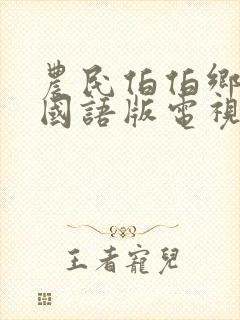 農民伯伯鄉
國語版電視
王者寵兒